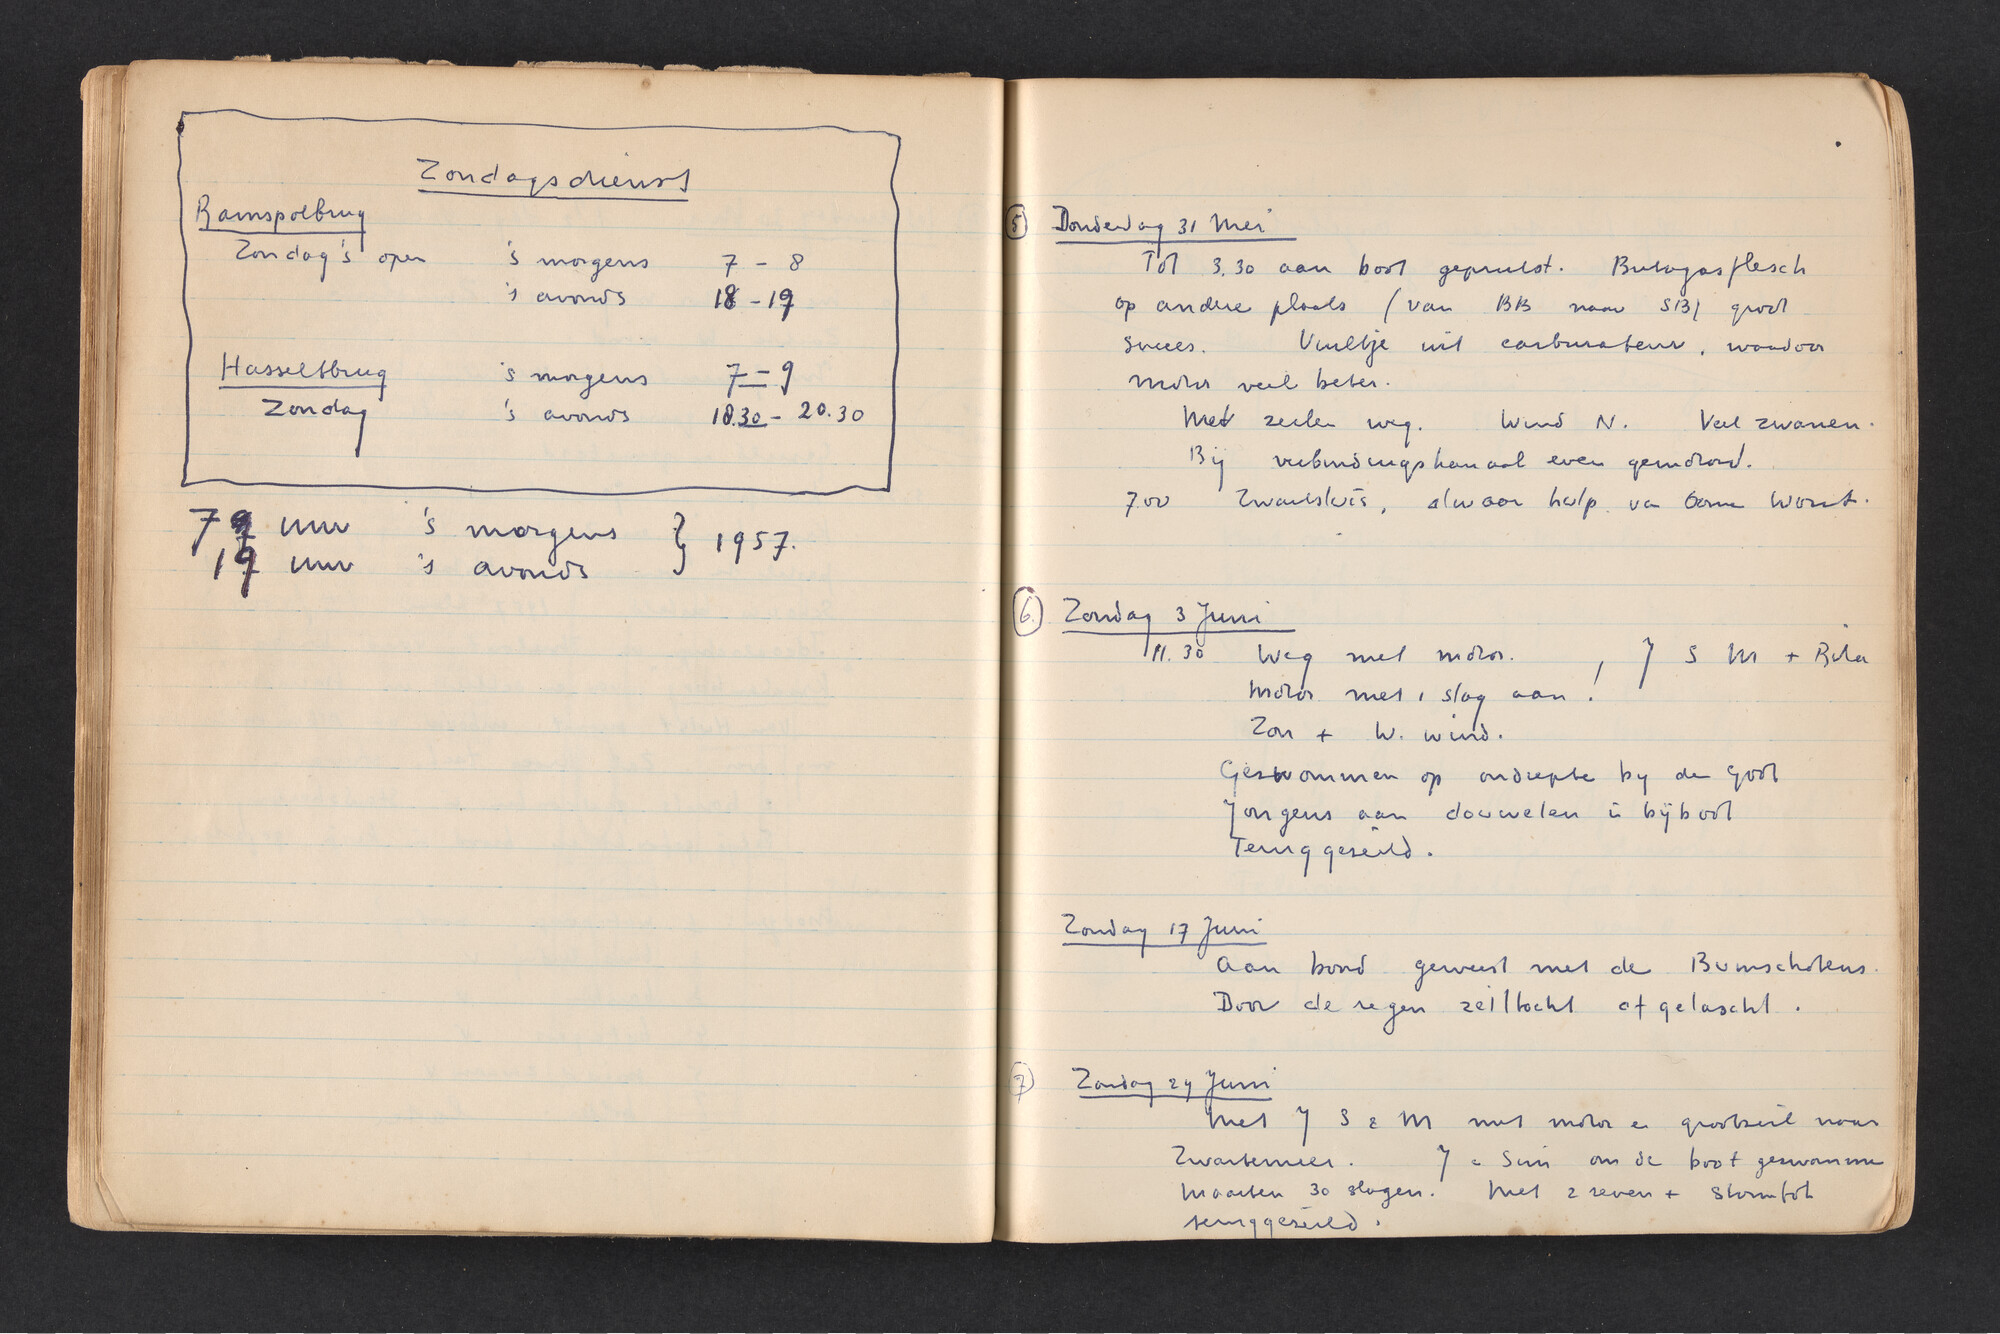 Zondagsdienst
Ramspolbrug
Zondag's open 's morgens 7 - 8
's avonds 18 - 19
Hasseltbrug 's morgens 7 - 9
Zondag 's avonds 18.30 - 20.30
7 uur 's morgens } 1957.
19 uur 's avonds
5 Donderdag 31 Mei
Tot 3.30 aan boot geprutst. Butagasflesch
op andere plaats (van BB naar SB) groot
succes. Vuiltje uit carburateur, waardoor
motor veel beter.
Met zeilen weg. Wind N. Veel zwanen.
Bij verbindingskanaal even gemotord.
7.00 Zwartsluis, alwaar hulp v. Oome Worst.
6. Zondag 3 Juni
11.30 Weg met motor. , J S M +
Motor met 1 slag aan!
Zon + W. wind.
Geswommen op ondiepte by de goot
Jongens aan douwelen in bijboot
Teruggezeild.
Zondag 17 Juni
Aan boord geweest met de Bumschotens.
Door de regen zeiltocht afgelascht.
7 Zondag 24 Juni
Met J S & M met motor en grootzeil naar
Zwartemeer. J & Sim om de boot geswommen
Maarten 30 slagen. Met 2 reven + stormfok
teruggezeild.